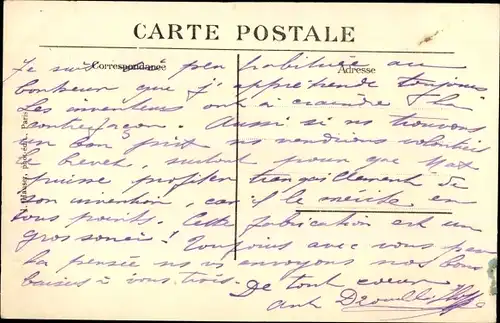 CARTE POSTALE
Correspondance
Adresse
Je suis si peu habituée au
bonheur que j'appréhende toujours
Les inventeurs ont à craindre la
contrefaçon. Aussi si ns trouvons
un bon prix ns vendrions volontiers
le brevet, surtout pour que
puisse profiter tranquillement de
son invention car il le mérite en
tous points. Cette fabrication est un
gros souci! Toujours avec vous par
la pensée ns vs envoyons nos bons
baisers à vous trois. De tout cœur